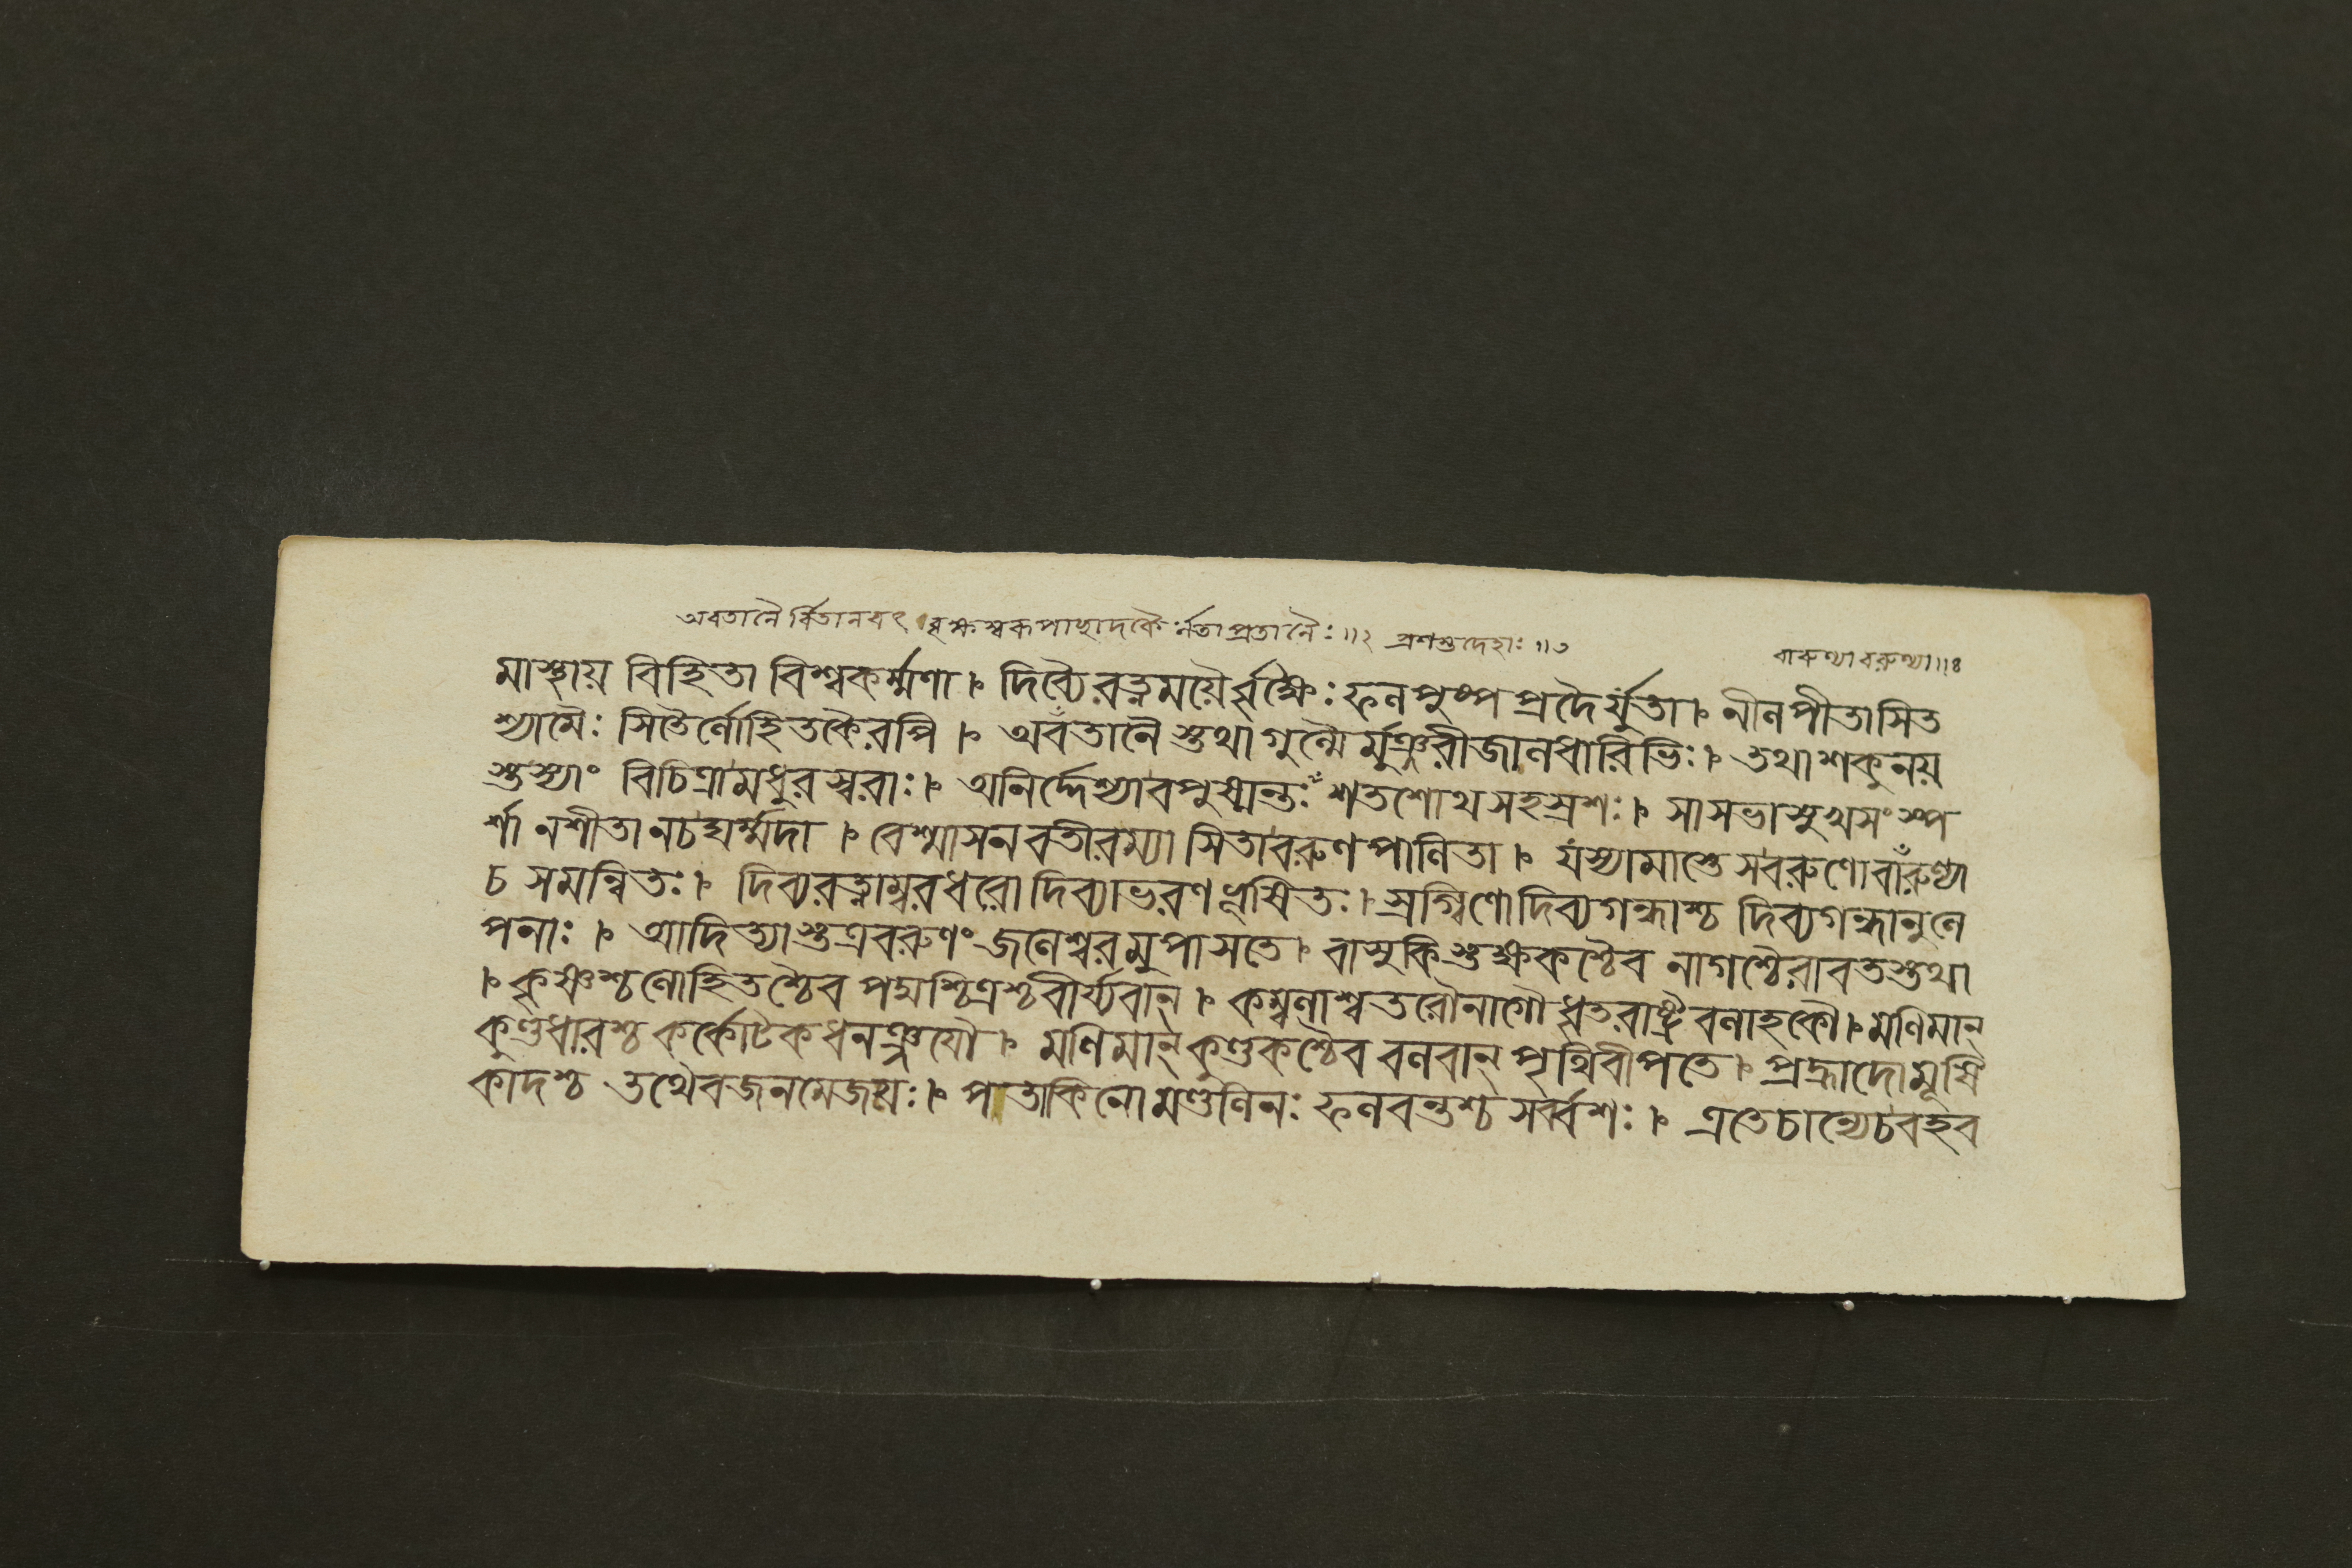 অবতানৈর্বিতানবৎ বৃক্ষস্বকপাচ্ছাদকৈর্ন্নতাপ্রতানৈঃ ॥২ প্রশস্তদেহাঃ ॥৩
বারুণ্যা বরুণ্যা ॥৪
মাস্থায় বিহিতা বিশ্বকর্ম্মণা । দিব্যৈ রত্নময়ৈর্বৃক্ষৈঃ ফলপুষ্পপ্রদৈর্যুতা । নীলপীতাসিত
শ্যামৈঃ সিতৈর্লোহিতকৈরপি । অবতানৈস্তথাগুল্মৈর্মঞ্জরীজালধারিভিঃ । তথাশকুনয়
স্তস্যাং বিচিত্রামধুরস্বরাঃ । অনির্দ্দেশ্যাবপুষ্মন্তঃ শতশোথসহস্রশঃ । সাসভাসুখসংস্প
র্শা নশীতা নচঘর্ম্মদা । বেশ্মাসনবতীরম্যা সিতাবরুণপালিতা । যস্যামাস্তেসবরুণোবারুণ্যা
চ সমন্বিতঃ । দিব্যরত্নাম্বরধরো দিব্যাভরণভূষিতঃ । স্রগ্বিণোদিব্যগন্ধাশ্চ দিব্যগন্ধানুলে
পনাঃ । আদিত্যাস্তত্রবরুণং জলেশ্বরমুপাসতে । বাসুকিস্তক্ষকশ্চৈব নাগশ্চৈরাবতস্তথা
। কৃষ্ণশ্চলোহিতশ্চৈব পদ্মশ্চিত্রশ্চবীর্য্যবান্ । কম্বলাশ্বতরৌনাগৌ ধৃতরাষ্ট্রবলাহকৌ । মণিমান্
কুণ্ডধারশ্চ কর্কোটকধনঞ্জয়ৌ । মণিমান্ কুণ্ডকশ্চৈব বলবান্ পৃথিবীপতে । প্রহ্লাদোমূষি
কাদশ্চ তথৈবজনমেজয়ঃ । পতাকিনো মণ্ডলিনঃ ফলবন্তশ্চ সর্ব্বশঃ । এতেচান্যেচবহব